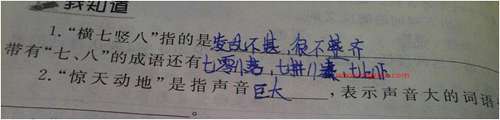 我知道
1.“横七竖八”指的是 很不整齐
带有“七、八”的成语还有七零八落,七拼八凑,七上八下
2.“惊天动地”是指声音巨大 ,表示声音大的词语
。